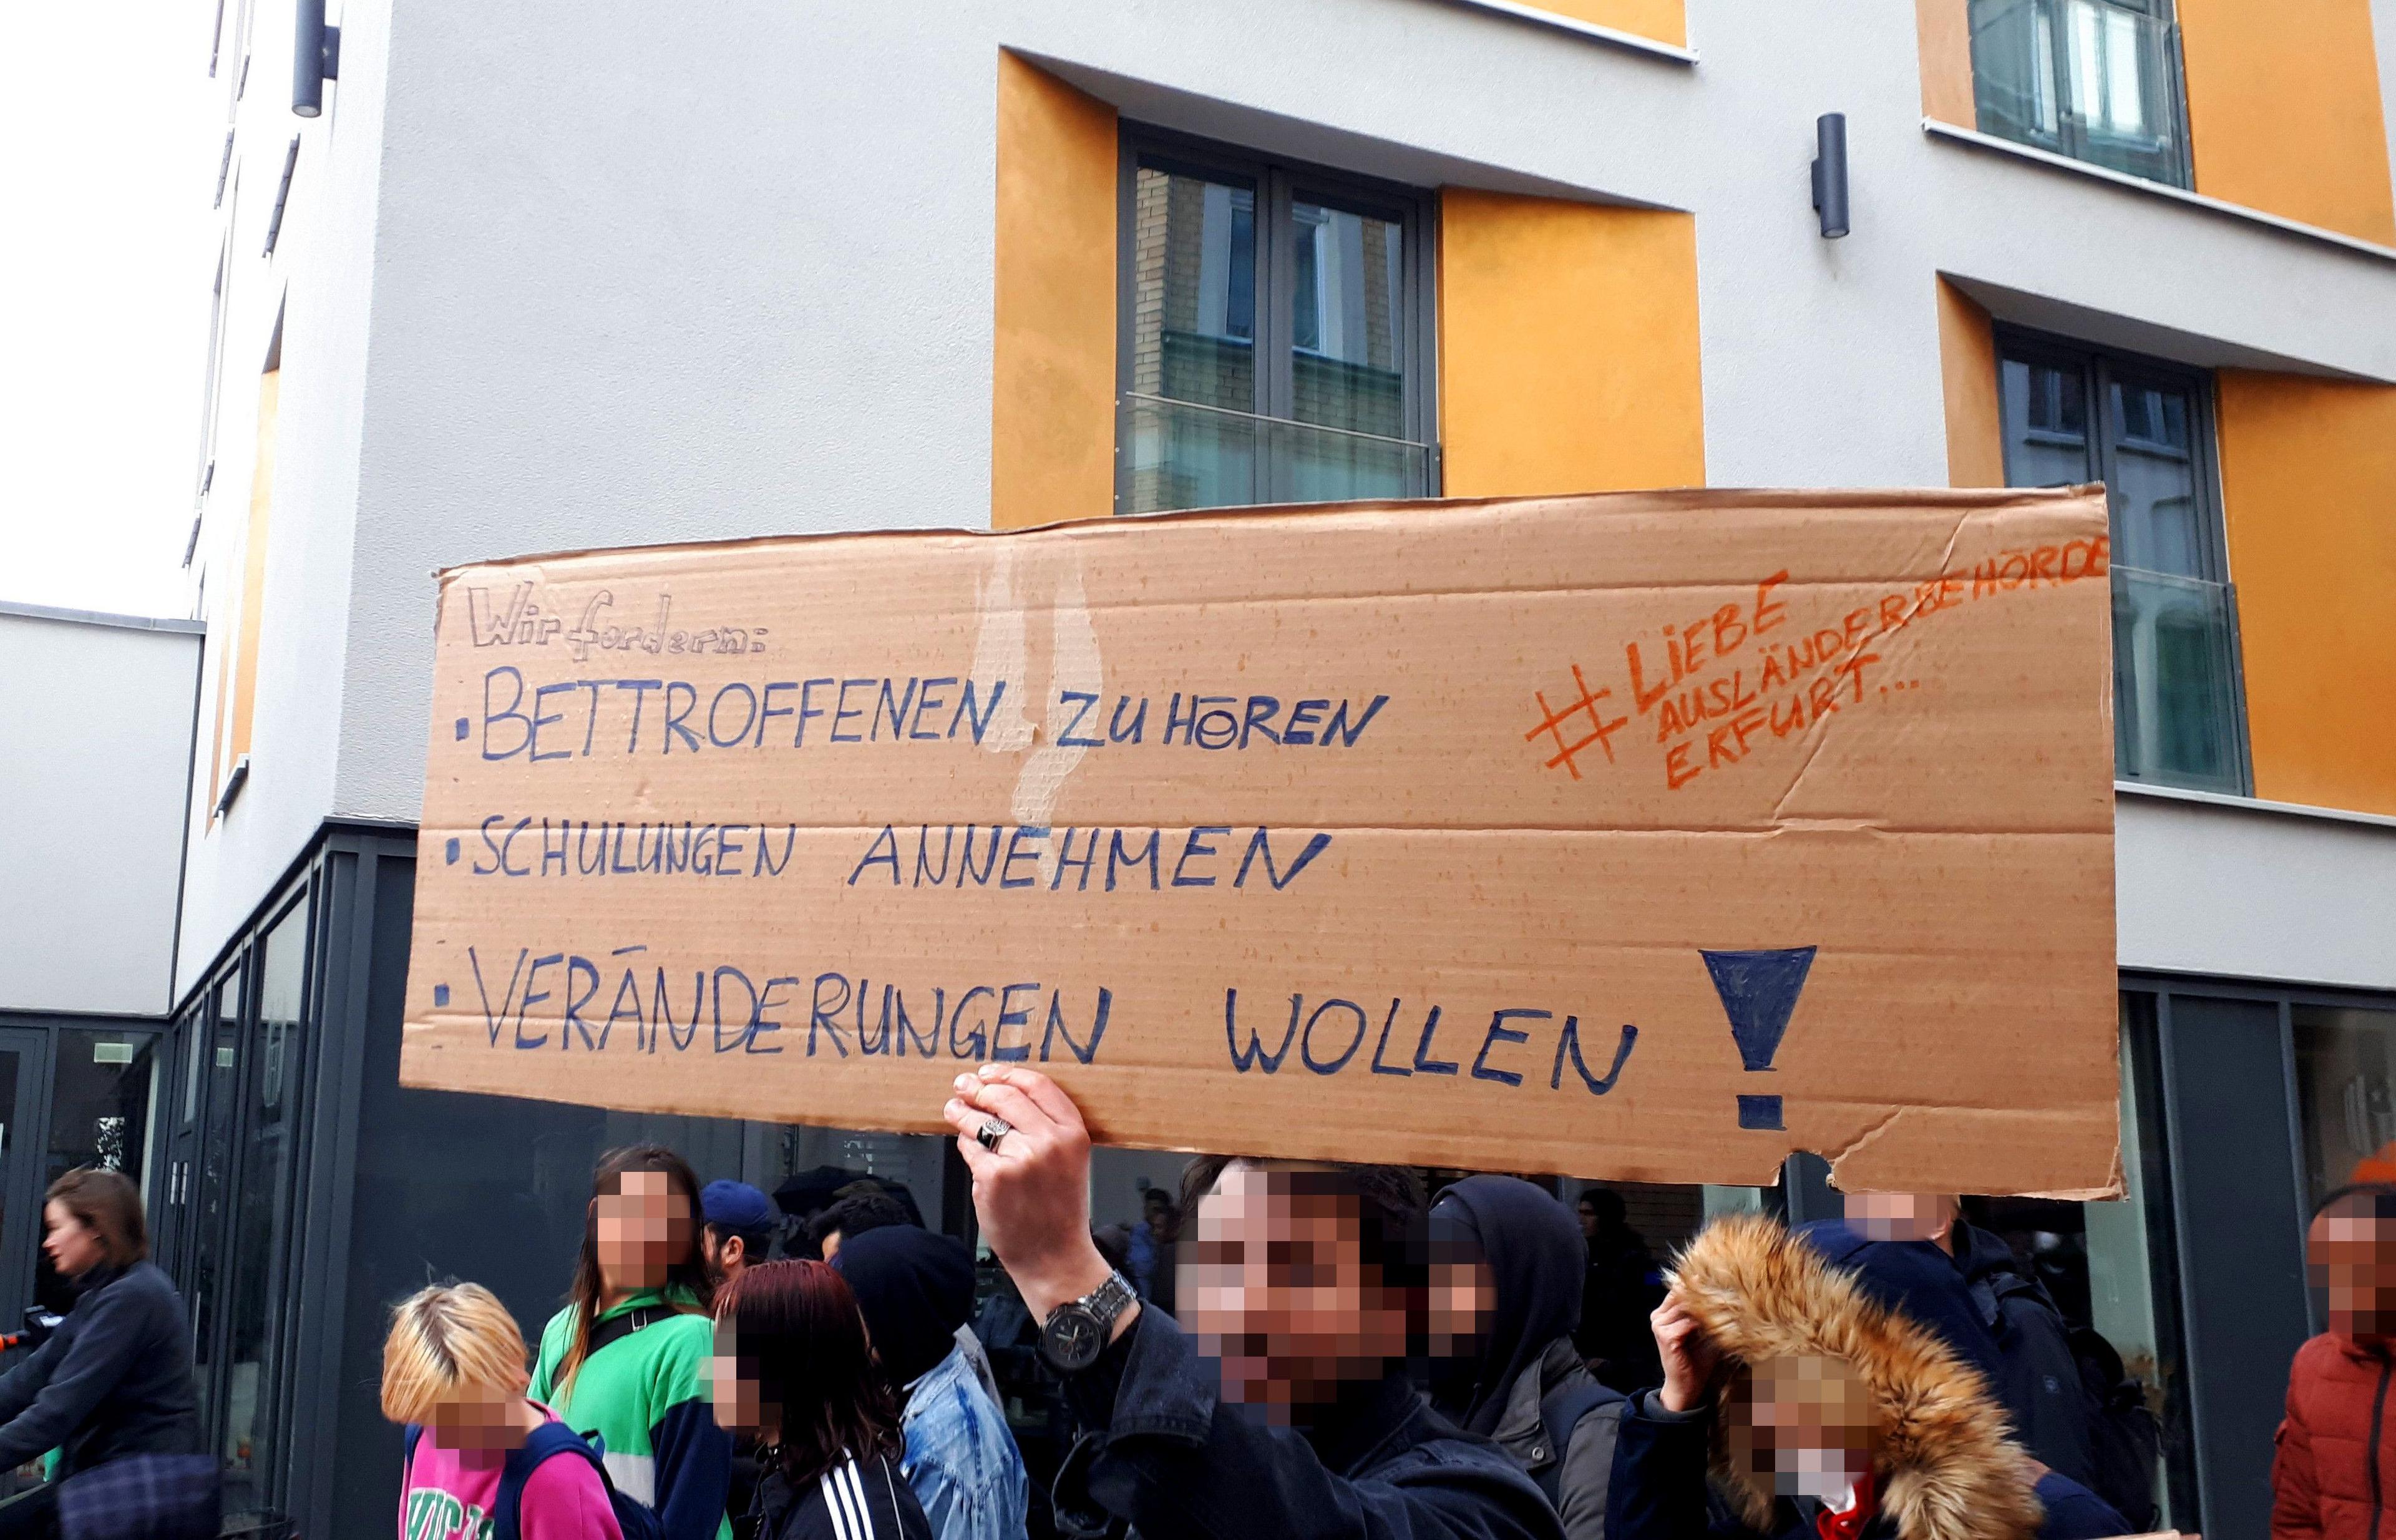 Wir fordern:
• BETTROFFENEN ZU HÖREN
• SCHULUNGEN ANNEHMEN
• VERÄNDERUNGEN WOLLEN !
#LiEBE
AUSLÄNDERBEHÖRDE
ERFURT...